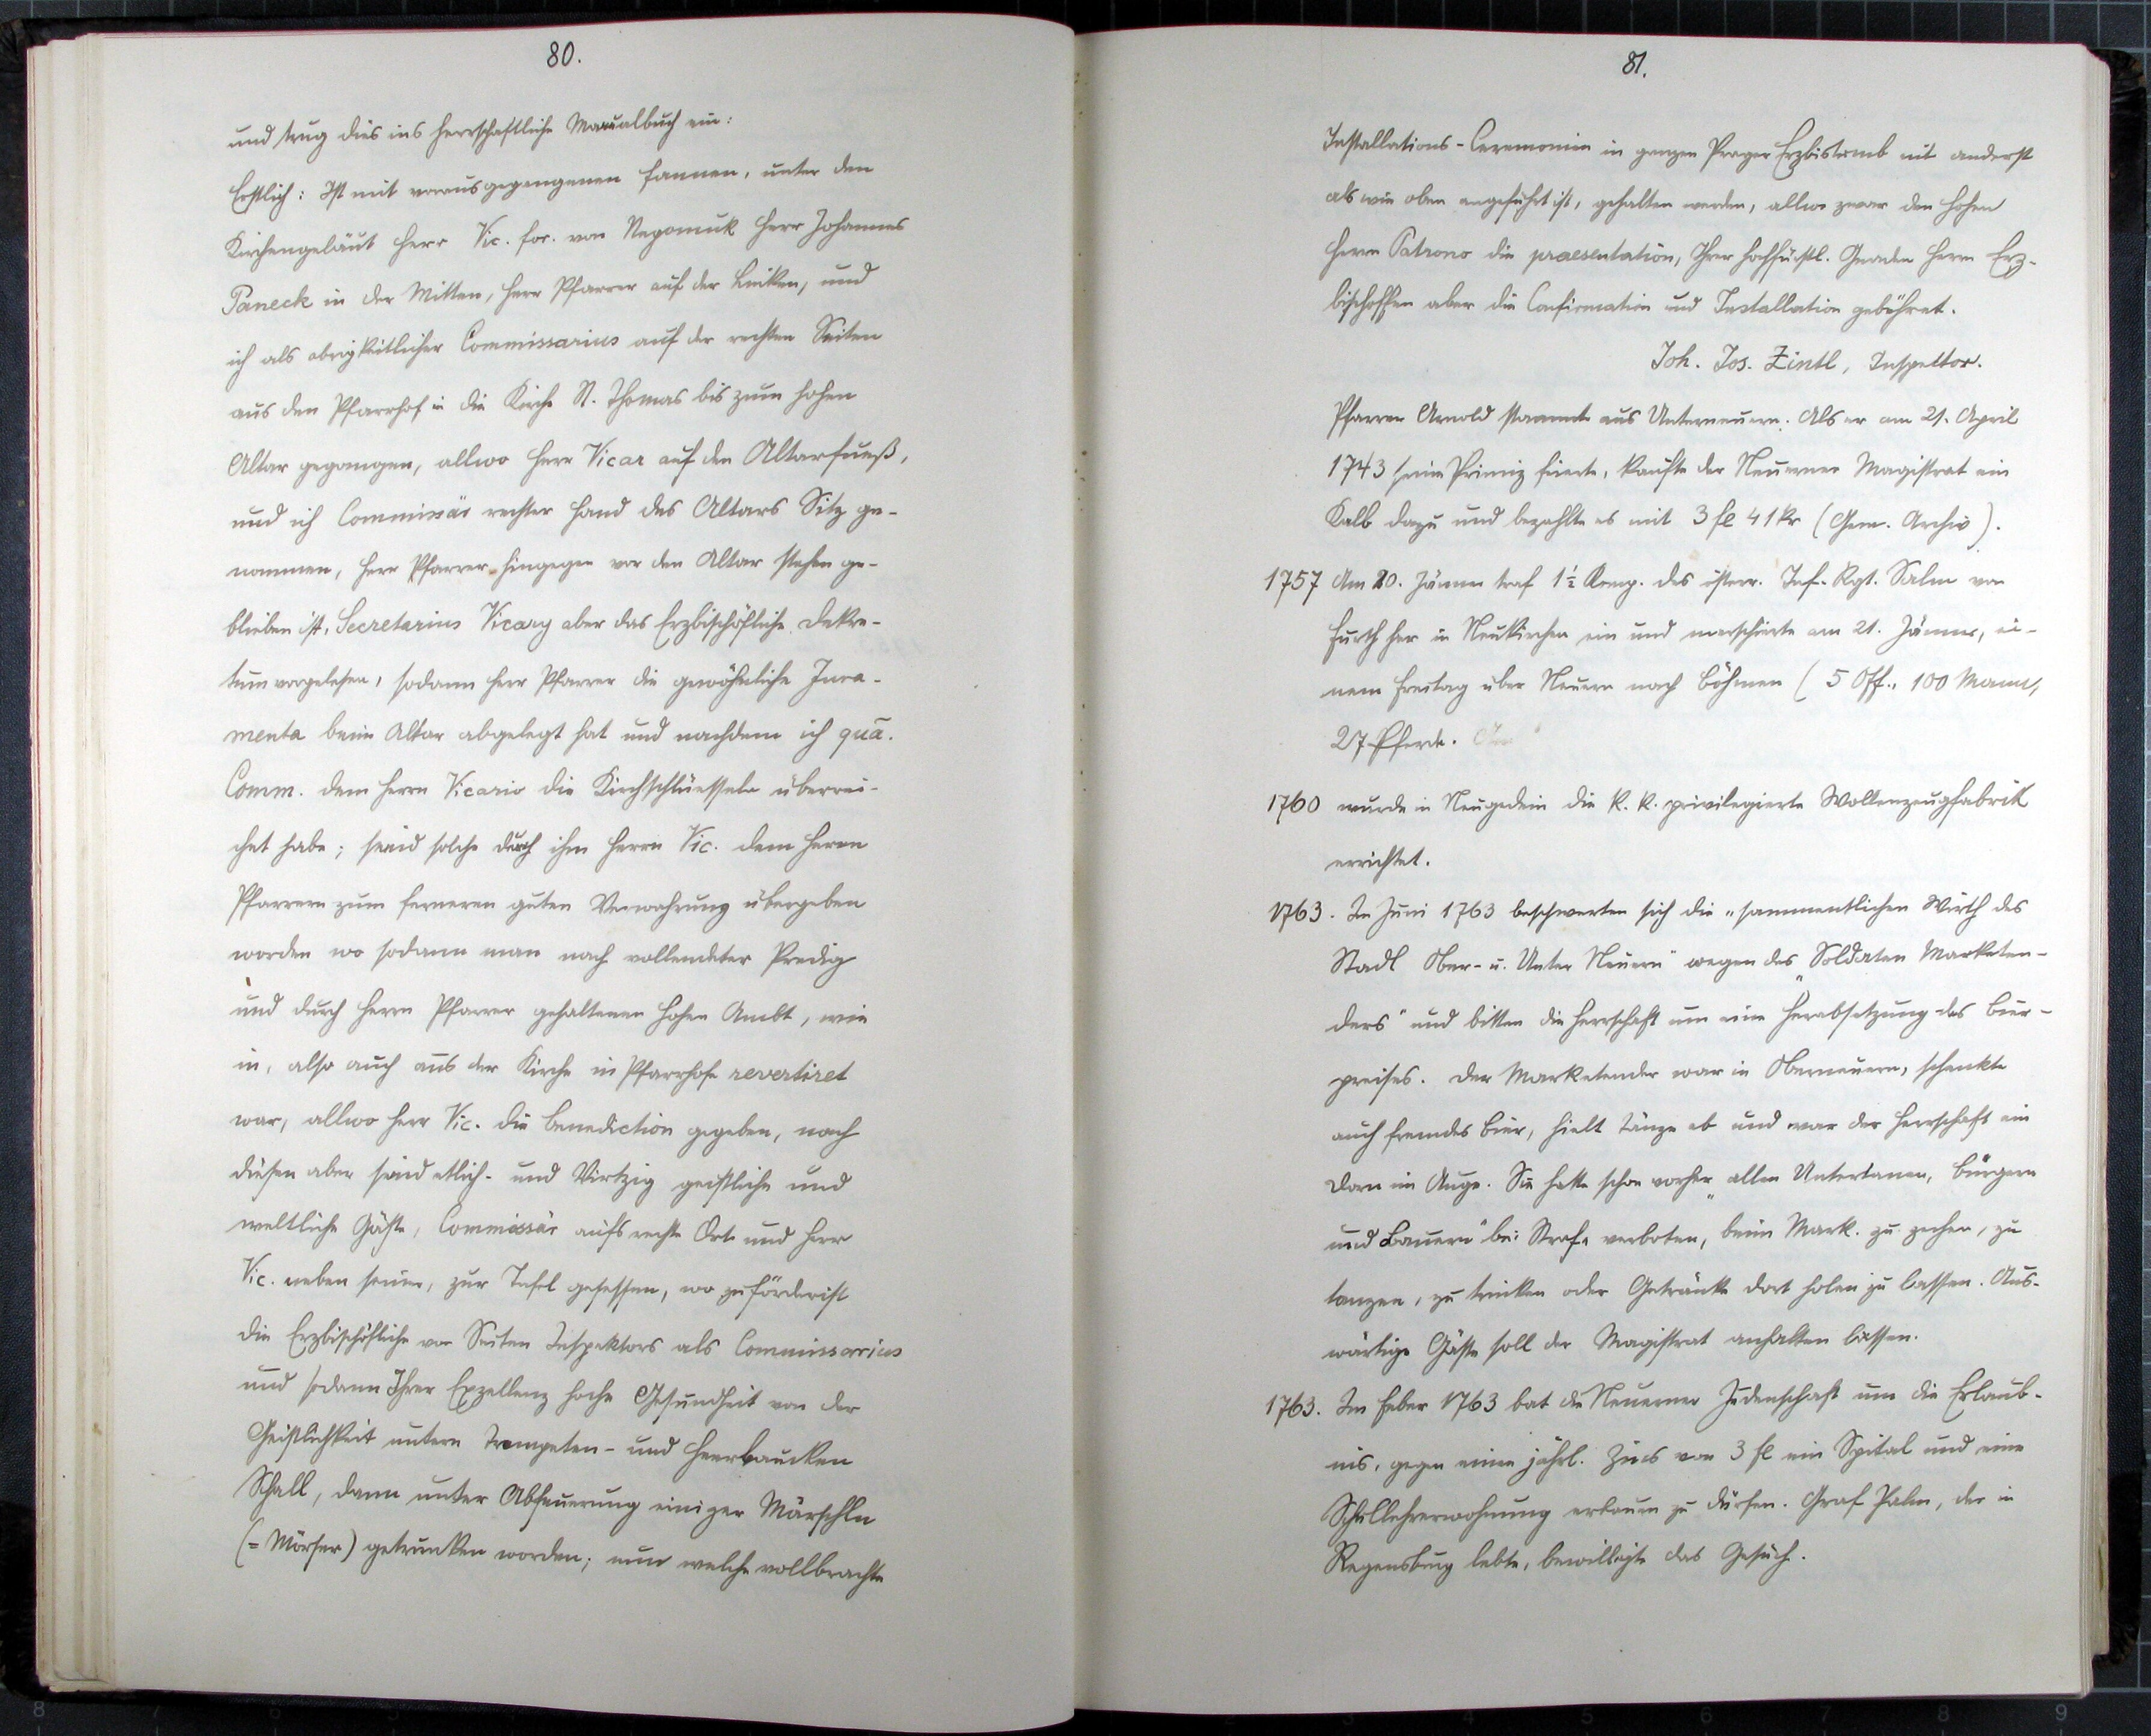 80.
und trug dies ins herrschaftliche Manualbuch ein:
Erstlich: Ist mit vorausgegangenen Fannen, unter den
Kirchengeläut Herr Vic. for. von Nepomuk Herr Johannes
Paneck in der Mitten, Herr Pfarrer auf der Linken, und
ich als obrigkeitlicher Commissarius auf der rechten Seiten
aus den Pfarrhof in die Kirche St. Thomas bis zum hohen
Altar gegangen, allwo Herr Vicar auf den Altarfueß,
und ich Commissär rechter Hand des Altars Sitz ge-
nommen, Herr Pfarrer hingegen vor den Altar stehen ge-
blieben ist, Secretarius Vicary aber das Erzbischöfliche Dekre-
tum vorgelesen, sodann Herr Pfarrer die gewöhnliche Jura-
menta beim Altar abgelegt hat und nachdem ich qua.
Comm. dem Herrn Vicario die Kirchschlüesseln überrei-
chet habe; seind solche durch ihm Herrn Vic. dem Herrn
Pfarrern zum ferneren guten Verwahrung übergeben
worden wo sodann man nach vollendeter Predig
und durch Herrn Pfarrer gehaltenen hohen Ambt, wie
in, also auch aus der Kirche in Pfarrhofe revertiret
war, allwo Herr Vic. die Benediction gegeben, nach
diesen aber seind etlich- und Virtzig geistliche und
weltliche Gäste, Commissär aufs rechte Ort und Herr
Vic. neben seiner, zur Tafel gesessen, wo zuförderist
die Erzbischöfliche von Seiten Inspektors als Commissarius
und sodann Ihrer Exzellenz hohe Gesundheit von der
Geistlichkeit untern Trompeten- und Heerbaucken
Schall, dann unter Abfeuerung einiger Märschln
(= Mörser) getrunken worden; nun welche vollbrachte
81.
Installations-Ceremonien in ganzen Prager Erzbistomb nit anderst
als wie oben angeführt ist, gehalten werden, allwo zwar den Hohen
Herrn Patrono die praesentation, Ihrer hochfürstl. Gnaden Herrn Erz-
bischoffen aber die Confirmation und Installation gebühret.
Joh. Jos. Zintl, Inspektor.
Pfarrer Arnold stammte aus Unterneuern. Als er am 21. April
1743 seine Primiz feierte, kaufte der Neuerner Magistrat ein
Kalb dazu und bezahlte es mit 3 fl 41 kr (Gem. Archiv).
1757 Am 20. Jänner traf 1½ Komp. des österr. Inf. Rgt. Salm von
Furth her in Neukirchen ein und marschierte am 21. Jänner, ei-
nem Freitag über Neuern nach Böhmen (5 Off., 100 Mann,
27 Pferde.
1760 wurde in Neugedein die k. k. privilegierte Wollenzeugfabrik
errichtet.
1763. Im Juni 1763 beschwerten sich die „sammentlichen Wirth des
Stadl Ober- u. Unter Neuern" wegen des „Soldaten Marketen-
ders" und bitten die Herrschaft um eine Herabsetzung des Bier-
preises. Der Marketender war in Oberneuern, schenkte
auch fremdes Bier, hielt Tänze ab und war der Herrschaft ein
Dorn im Auge. Sie hatte schon vorher „allen Untertanen, Bürgern
und Bauern" bei Strafe verboten, beim Mark. zu zechen, zu
tanzen, zu trinken oder Getränke dort holen zu lassen. Aus-
wärtige Gäste soll der Magistrat anhalten lassen.
1763. Im Feber 1763 bat die Neuerner Judenschaft um die Erlaub-
nis, gegen einen jährl. Zins von 3 fl ein Spital und eine
Schullehrerwohnung erbauen zu dürfen. Graf Palm, der in
Regensburg lebte, bewilligte das Gesuch.